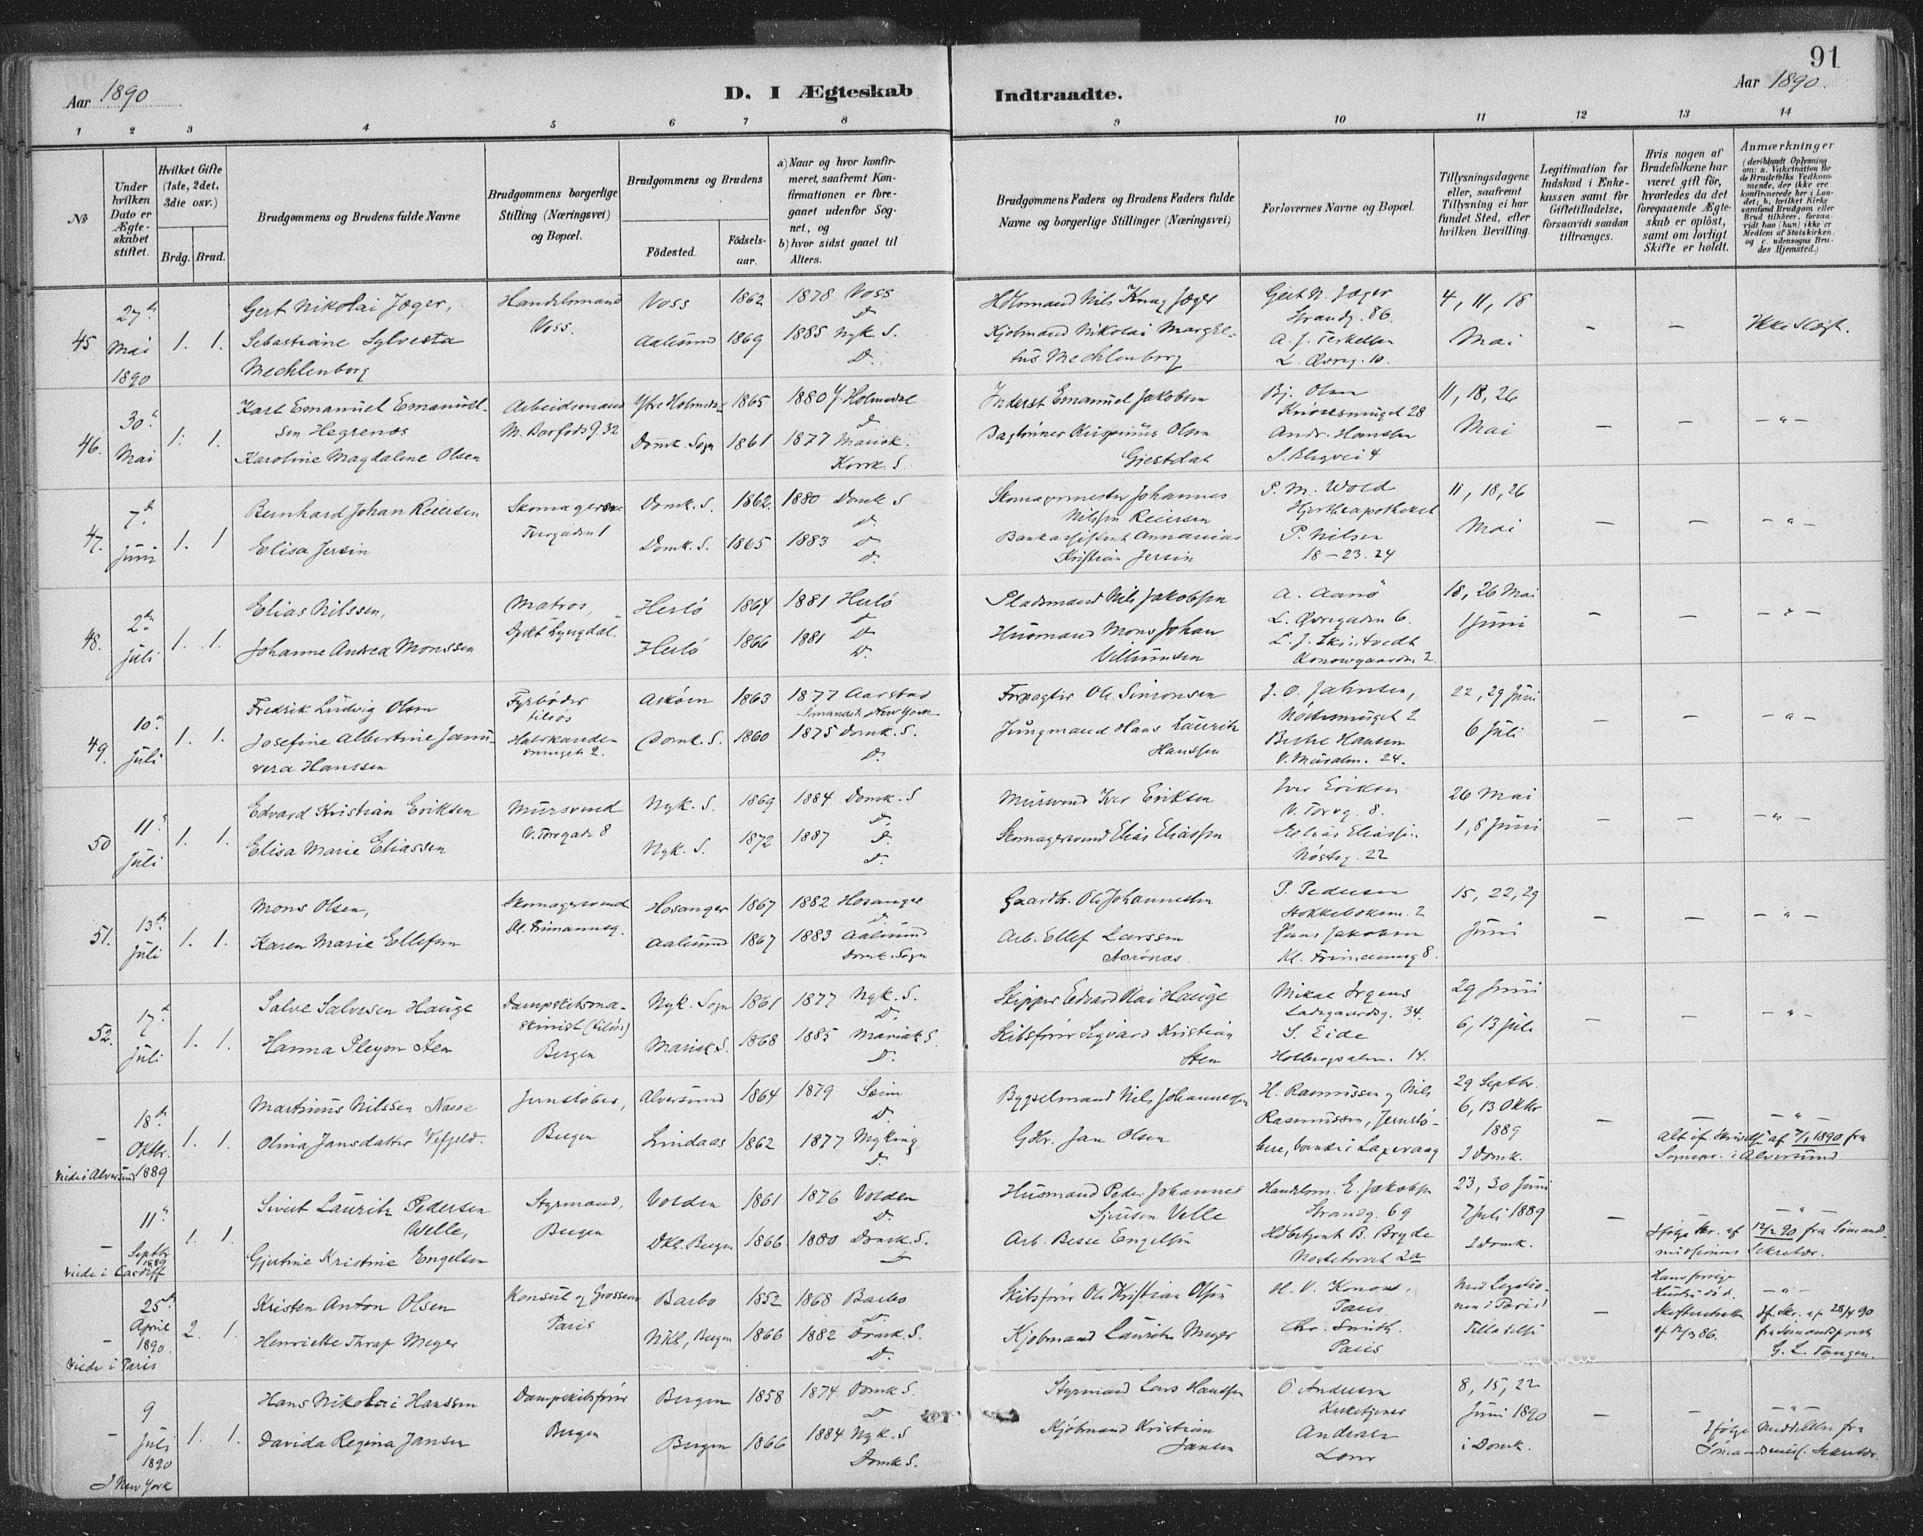 91
Aar 1890
D. I Ægteskab
Indtraadte.
Aar 1890.
1 2 3 4 5 6 7 8 9 10 11 12 13 14
№
Under hvilken Dato er Ægteskabet stiftet.
Hvilket Gifte (1ste, 2det, 3die osv.)
Brdg. Brud.
Brudgommens og Brudens fulde Navne
Brudgommens borgerlige Stilling (Næringsvei) og Bopæl.
Brudgommens og Brudens
Fødested. Fødsels-aar.
a) Naar og hvor konfirmeret, saafremt Konfirmationen er foregaaet udenfor Sognet, og
b) hvor sidst gaaet til Alters.
Brudgommens Faders og Brudens Faders fulde Navne og borgerlige Stillinger (Næringsvei)
Forlovernes Navne og Bopæl.
Tillysningsdagene eller, saafremt Tillysning ei har fundet Sted, efter hvilken Bevilling.
Legitimation for Indskud i Enkekassen samt for Giftetilladelse, forsaavidt saadan tiltrænges.
Hvis nogen af Brudefolkene har været gift før, hvorledes da det foregaaende Ægteskab er opløst, samt om lovligt Skifte er holdt.
Anmærkninger
45 27de Mai 1890 1. 1.
Gert Nikolai Jæger, Handelsmand Voss. Voss 1862 1878 Voss D.
Sebastiane Sylvesta Mechlenborg Aalesund 1869 1885 Nyk. S. D.
Nils Knag Jæger
Kjøbmand Nikolai Mechlenborg
Gert N. Jæger Strandg. 86.
A. J. Terkelsen L. Øvreg. 10.
4, 11, 18 Mai
– – Ikke Slægt.
46. 30te Mai 1. 1.
Karl Emanuel Emanuelsen Hegrenæs Arbeidsmand Ytre Holmedal 1865 1880 Y. Holmedal D.
Karoline Magdalene Olsen Domk. Sogn 1861 1877 Mariæk. Korsk. S.
Inderst Emanuel Jakobsen
Olsen Gjestdal
Bj. Olsen 28
Andr. Hanssen 4
11, 18, 26 Mai
– – – „ –
47. 7de Juni 1. 1
Bernhard Johan Reiersen Domk. S. 1862 1880 Domk. S D.
Elisa Jersin Domk. S. 1865 1883 D. D.
Skomagermester Johannes Nilssen Reiersen
Kristian Jersin
P. M. Wold Hjorteapotheket
P. Nilsen 18 – 23. 24
11, 18, 26 Mai
– – – „ –
48. 2den Juli 1. 1.
Elias Nilssen, Matros, Herlø 1864 1881 Herlø D.
Johanne Andrea Monssen Herlø 1866 1881 D. D.
Pladsmand Nils Jakobsen
Husmand Mons Johan Villumsen
A. Aanø L. Øvregaden 6.
Konowgaarden 2.
18, 26 Mai 1 Juni
– – „
49. 10de Juli 1. 1.
Fredrik Ludvig Olsen Fyrbøder tilsøs Askøen 1863 1877 Aarstad New York
Josefine Albertine Januvera Hanssen Domk. S. 1860 1875 Domk. S. D.
Forpagter Ole Simonsen
Jungmand Hans Lauritz Hanssen
J. O. Jahnsen, Nøstesmuget 2
Hansen V. Muralm. 24.
22, 29 Juni 6 Juli
– – – „ –
50 11te Juli 1. 1.
Edvard Kristian Eriksen Mursvend V. Torvgade 8 Nyk. S. 1869 1884 Domk. S D.
Elisa Marie Eliassen Nyk. S. 1872 1887 D. D.
Mursvend Iver Eriksen
Skomagersvend Elias Eliassen
Iver Eriksen V. Torvg. 8.
Elias Eliassen Nøsteg. 22
26 Mai 1, 8 Juni
– – – „ –
51. 13de Juli 1. 1.
Mons Olsen, Skomagersvend Hosanger 1867 1882 Hosanger D.
Karen Marie Ellefsen Aalesund 1867 1883 Aalesund Domk. Sogn
Gaardbr. Ole Johannessen
Arb. Ellef Larssen
P. Pedersen 2
Hans Jakobsen 8.
15, 22, 29 Juni
– – – „ –
52. 17de Juli 1. 1.
Salve Salvesen Hauge Dampskibsmaskinist (tilsøs) Bergen Nyk. Sogn 1861 1877 Nyk. S. D.
Hanna Pleym Sten Mariæk S. 1868 1885 Mariæk S. D.
Skipper Edvard Kai Hauge
Skibsfører Sigvard Kristian Sten
Mikal Irgens Ladegaardsg. 34.
S. Eide Holbergsalm. 14.
29 Juni 6, 13 Juli
– – – „ –
– 18de Oktbr. 1889 viede i Alversund 1. 1.
Martinus Nilssen Jernstøber, Bergen Alversund 1864 1879 Sæim D.
Olina Jansdatter Lindaas 1862 1877 Myking D.
Bygselmand Nils Johannessen
Gdbr. Jan Olsen
H. Rasmussen og Nils Rasmussen, Jernstøbere, boende i Laxevaag
29 Septbr. 6, 13 Oktbr 1889 i Domk.
– – – „ –
Alt if. Skrivelse af 7/1 1890 fra Sognepr. i Alversund
– 11te Septbr 1889 viede i Cardiff 1. 1.
Sivert Lauritz Pedersen Welle, Styrmand, Bergen Volden 1861 1876 Volden D.
Gjertine Kristine Engelsen Dkb. Bergen 1866 1880 Domk. S.
Husmand Peder Johannes Sjursen Velle
Arb. Engelsen
Handelsm. E. Jakobsen Strandg. 69
B. Bryde Nøstetorvet 2a
23, 30 Juni 7 Juli 1889 i Domk.
– – „ –
Ifølge Skr. af 12/2 90 fra Sømandsmissionens Sekretær.
– 25de April 1890. viede i Paris 2. 1.
Kristen Anton Olsen Konsul og Grosserer Paris Barbo 1852 1868 Barbo D.
Henriette Thrap Meyer Nkb, Bergen 1866 1882 Domk. S. D.
Skibsfører Ole Kristian Olsen
Kjøbmand Lauritz Meyer
H. V. Konow, Paris
Chr. Smith. Paris
Med Legationen i Paris' Tilladelse
– – „ –
Hans forrige Hustru død. Skifteattest af 12/3 86.
If. Skr. af 28/4 90 fra Sømandsprest G. L. Tangen.
– 9 Juli 1890 I New York 1. 1.
Hans Nikolai Hanssen Dampskibsfører Bergen Bergen 1858 1874 Domk S. D
Davida Regina Jansen Bergen 1866 1884 Nyk. S Domk S.
Styrmand Lars Hanssen
Kjøbmand Kristian Jansen
O. Andersen Kirketjener
Andersen
8, 15, 22 Juni 1890 i Domk.
– – – „ –
Ifølge Meddelelse fra Sømandsmis. Sekretær.